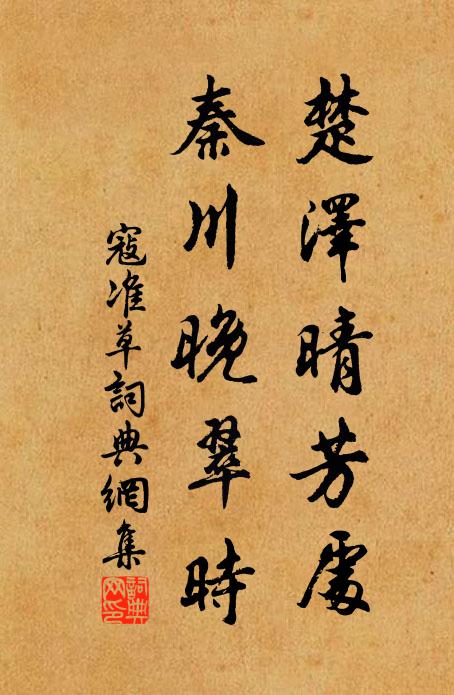 楚澤晴芳處
秦川晚翠時
寇准草詞典網集
詞典网印